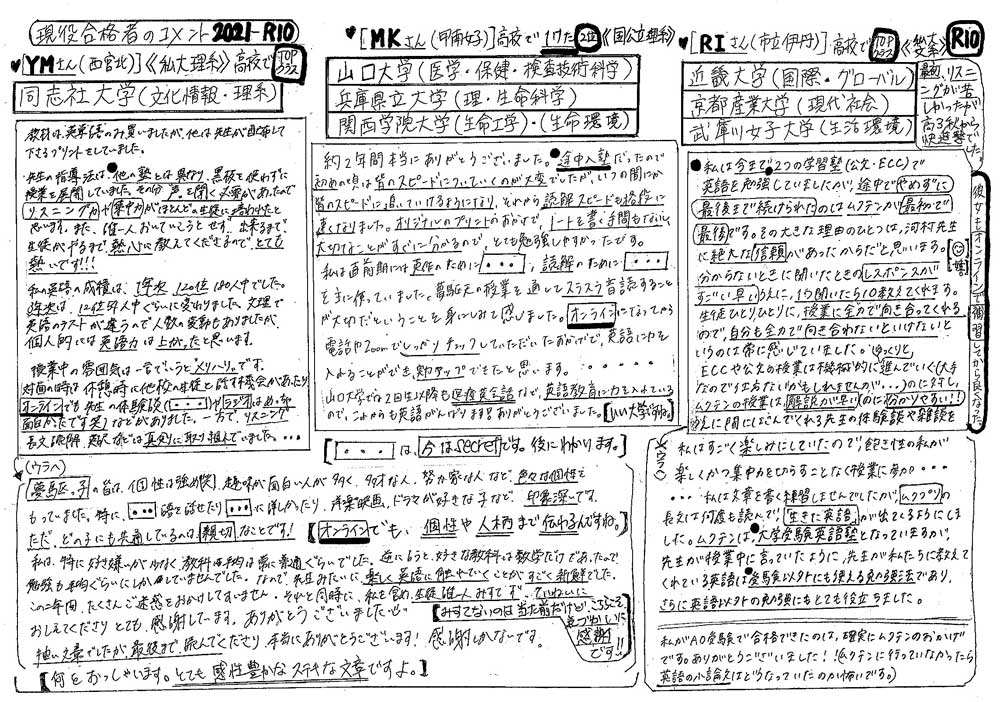 現役合格者のコメント 2021-R10
♥[YMさん(西宮北)]《私大理系》高校でTOPクラス
同志社大学(文化情報・理系)
教材は、英単語のみ買いましたが、他は先生が自布して
下さるプリントをしていました。
先生の指導法は、他の塾とは異なり、黒板を使わずに
授業を展開していました。その分、声を聞く必要があったので
リスニング力や集中力がほとんどの生徒に培われたと
思います。また、誰一人おいていこうとせず、出来るまで、
生徒がやるまで、熱心に教えてくださるので、とても
熱いです!!!
私の英語の成績は、1年次 120位/180人中でした。
3年次は、12位/ 人中ぐらいに変わりました。文理で
英語のテストが違うので人数の変動もありましたが、
個人的には英語力は上がったと思います。
授業中の雰囲気は一言でいうと“メリハリ”です。
対面の時は休憩時に他校の生徒と話す機会があったり
オンラインでも先生の体験談(・・・)やラジオ(はめっちゃ
面白かったです笑)などがありました。一方で、リスニング
長文読解、 などは真剣に取り組んでいました。・・・
(ウラへ)
夢馬区。子の皆は、個性は強め(笑)、趣味が面白い人が多く、多才な人、努力家な人など、色々な個性を
もっていました。特に、・・・語を話せたり・・・に詳しかったり、洋楽、映画、ドラマが好きな子など、印象深いです。
ただ、どの子にも共通しているのは親切なことです!
【オンラインでも、個性や人柄まで伝わるんですね。】
私は、特に好き嫌いが少なく、教科は平均的に常に普通ぐらいでした。逆に言うと、好きな教科は数学だけであったので
勉強も平均ぐらいにしかしていませんでした。なので、先生みたいに、楽しく英語に触れていくことがすごく新鮮でした。
この二年間、たくさんご迷惑をおかけしてすいません。それと同時に、私を含め、生徒誰一人みすてず、ていねいに
おしえてくださりとても感謝しています。ありがとうございました。
拙い文章でしたが最後まで読んでくださり本当にありがとうございます! 感謝しかないです。
【みすてないのは当たり前だけど、こちらこそ気づかいに感謝です!!】
【何をおっしゃいます。とても感性豊かなステキな文章ですよ。】
♥[MKさん(甲南女子)]高校で1ケタ2位《国公立理系》
山口大学(医学・保健・検査技術科学)
兵庫県立大学(理・生命科学)
関西学院大学(生命工学)・(生命環境)
約2年間本当にありがとうございました。途中入塾だったので
初めの頃は皆のスピードについていくのが大変でしたが、いつの間にか
皆のスピードに追いていけるようになり、それから読解スピードも格段に
速くなりました。オリジナルのプリントのおかげで、ノートを書く手間もなく、
大切なことがすぐに分かるので、とても勉強しやすかったです。
私は直前期には英作のために・・・、読解のために・・・
を主に使っていました。夢馬区の授業を通してスラスラ音読すること
が大切だということを身にしみて感じました。オンラインになってから
電話やZoomでしっかりチェックしていただいたおかげで、英語に力を
入れることができ、即アップできたと思います。
山口大学でも2回生以降も医療英会話など、英語教育に力を入れている
ので、これからも英語がんばります!ありがとうございました。【いい大学ですね。】
【・・・は、今はsecretです。後にわかります。】
♥[RIさん(市立伊丹)]高校でTOPクラス《私大文系》R10
近畿大学(国際・グローバル)
京都産業大学(現代社会)
武庫川女子大学(生活環境)
最初、リスニングが苦しかったが高3秋から快進撃でした。
●私は今まで2つの学習塾(公文・ECC)で
英語を勉強していましたが、途中でやめずに
最後まで続けられたのはムクテンが最初で
最後です。その大きな理由のひとつは、河村先生
に絶大な信頼があったからだと思います。
分からないときに聞いたときのレスポンスが
すごい早いうえに、1つ聞いたら10教えてくれます。
生徒ひとりひとりに、授業に全力で向き合ってくれる
ので、自分も全力で向き合わないといけないと
いうのは常に感じていました。ゆっくりと、
ECCや公文の授業は機械的に進んでいく(大手
なので仕方ないかもしれませんが・・・)のに対し、
ムクテンの授業は、解説が早い(のに分かりやすい!!)
うえに間にはさんでくれる先生の体験談や雑談を
彼女もオンラインで補習してから良くなった
《ウラへ》
私はすごく楽しみにしていたので、飽き性の私が
楽しくかつ集中力をひらすことなく授業に参加・・・
・・・私は文章を書く練習しませんでしたが、ムクプリの
長文は何度も読んで、「生きた英語」が出てくるようにしま
した。ムクテンは、大学受験英語塾となっていますが、
先生が授業中に言っていたように、先生が私たちに教えて
くれている英語は受験以外にも使える勉強法であり、
さらに英語以外の勉強にもとても役立ちました。
私がAO受験で合格できたのは、確実にムクテンのおかげ
です。ありがとうございました!!(ムクテンに行っていなかったら
英語の小論文はどうなっていたのか怖いです。)